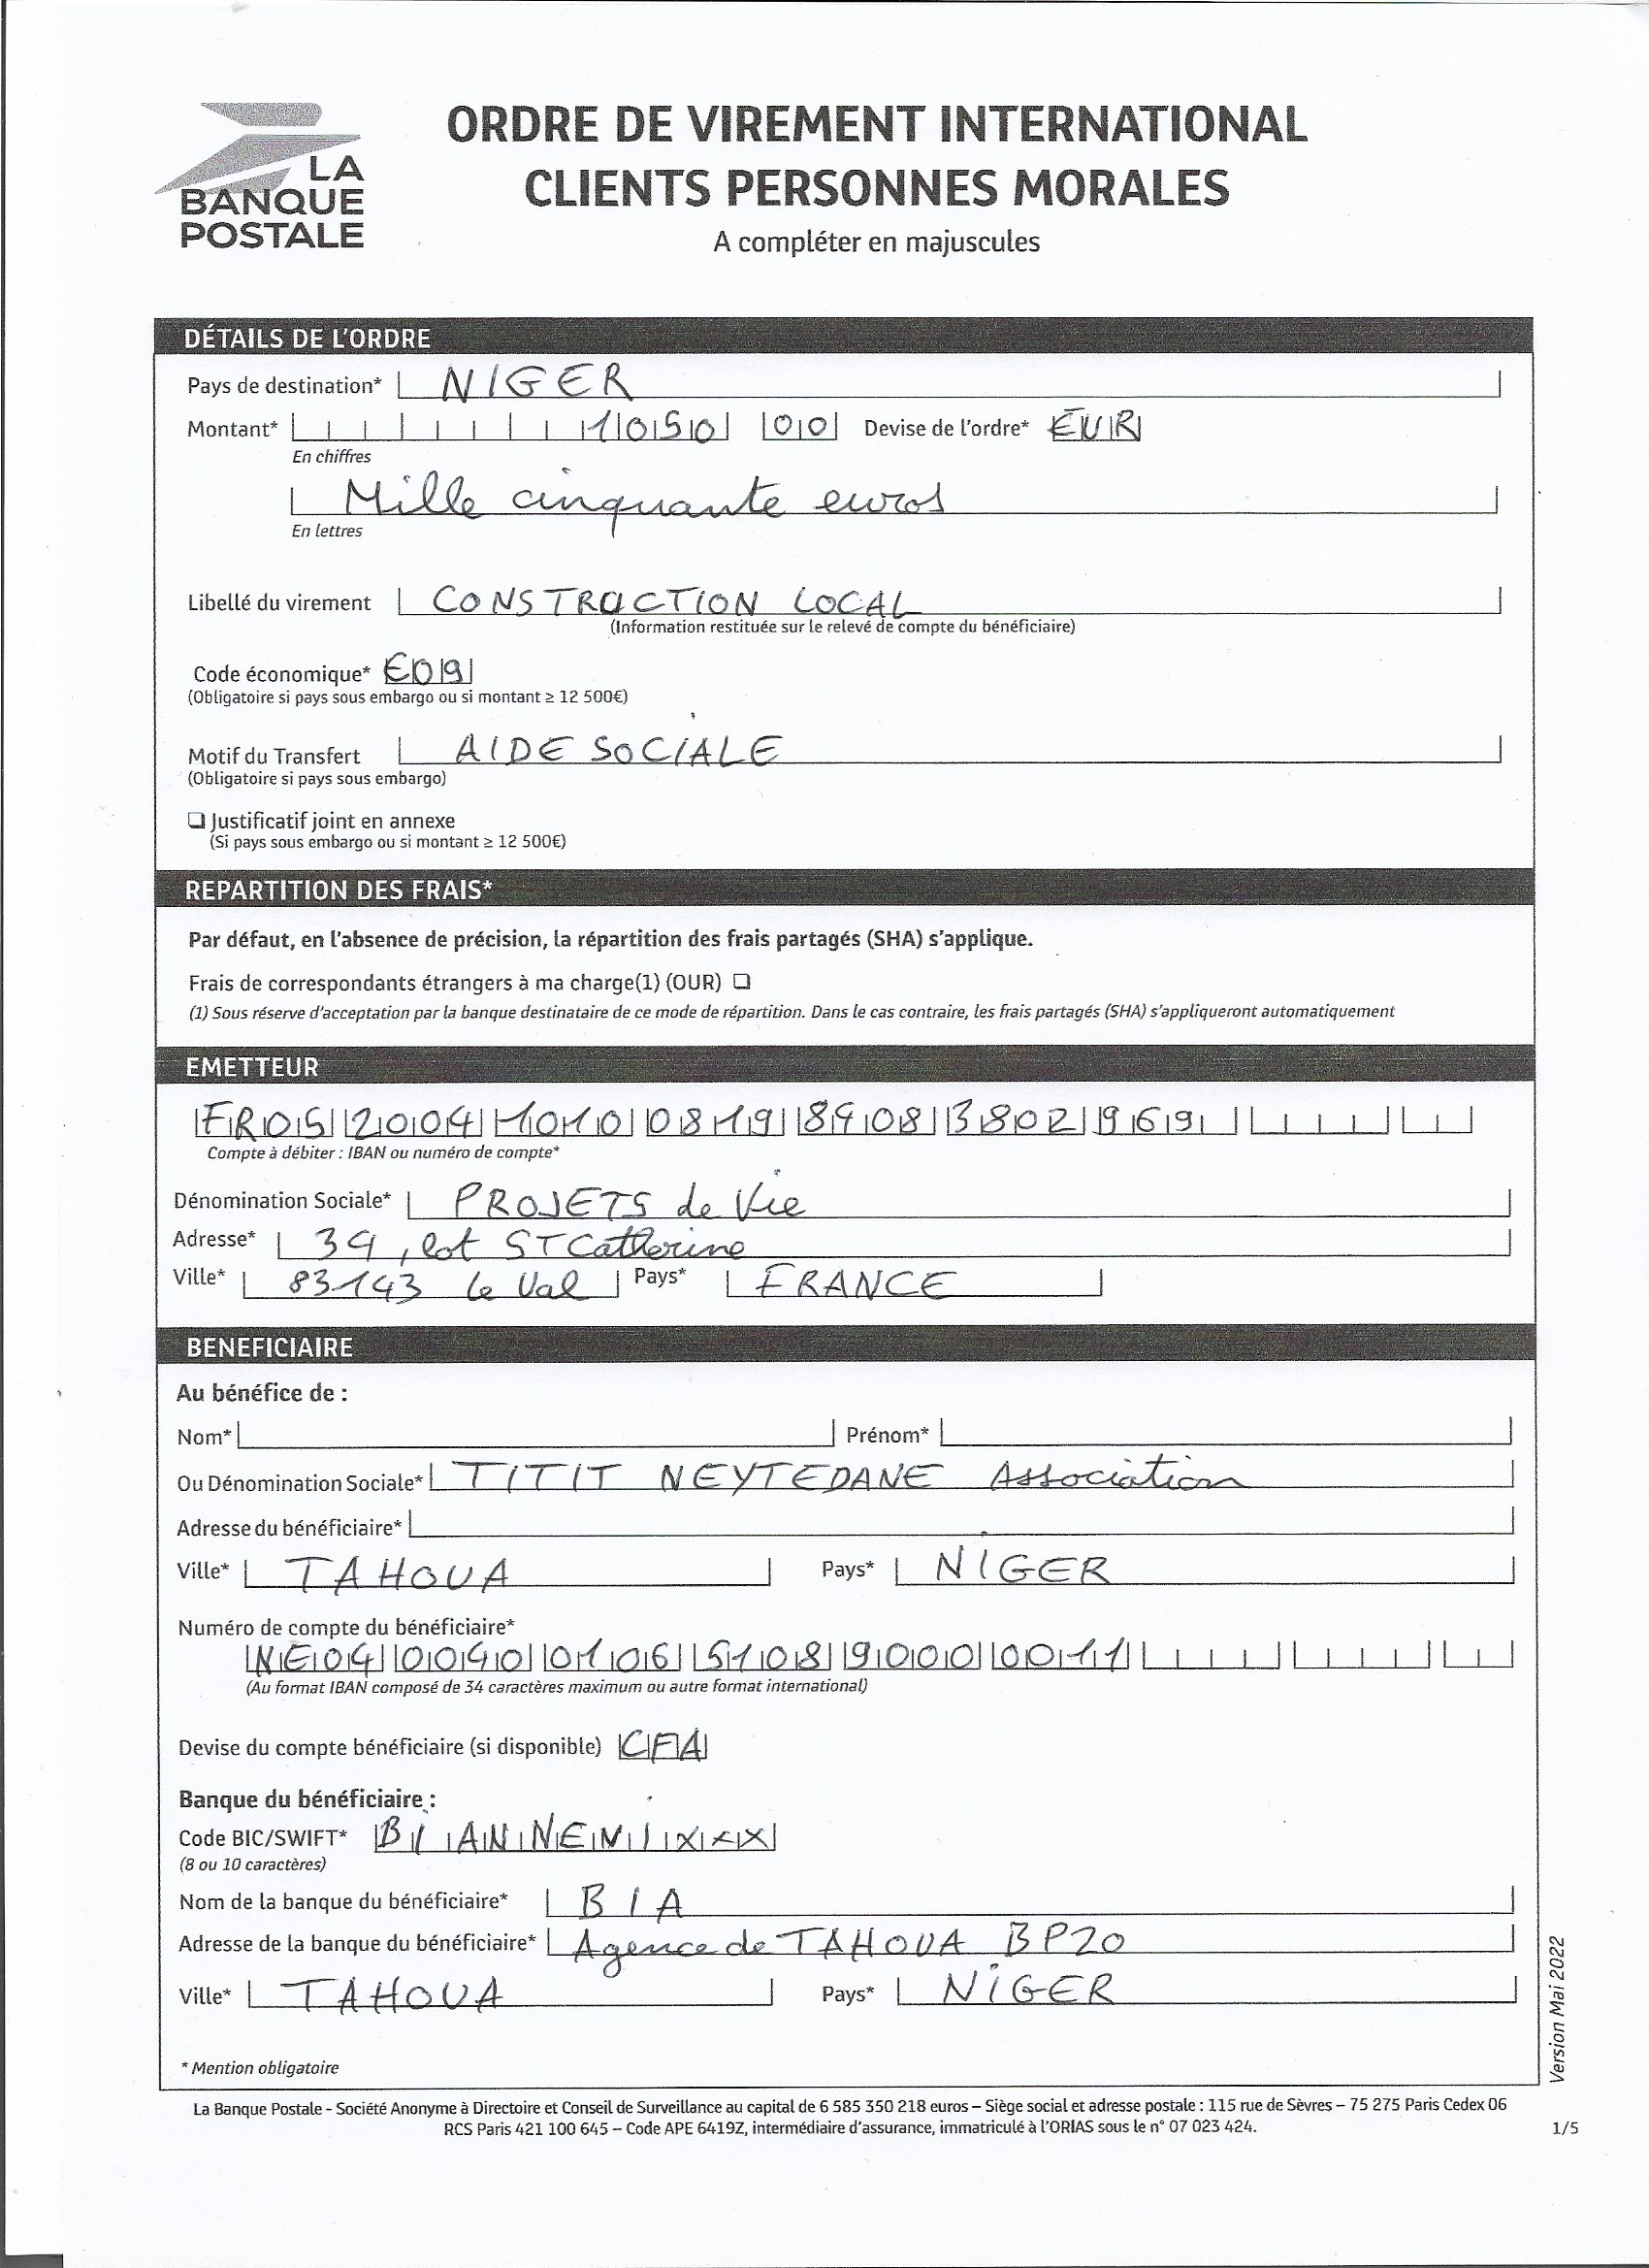 LA
BANQUE
POSTALE
ORDRE DE VIREMENT INTERNATIONAL
CLIENTS PERSONNES MORALES
A compléter en majuscules
DÉTAILS DE L'ORDRE
Pays de destination* NIGER
Montant* 1050 00 Devise de l'ordre* EUR
En chiffres
Mille cinquante euros
En lettres
Libellé du virement CONSTRUCTION LOCAL
(Information restituée sur le relevé de compte du bénéficiaire)
Code économique* E09
(Obligatoire si pays sous embargo ou si montant ≥ 12 500€)
Motif du Transfert AIDE SOCIALE
(Obligatoire si pays sous embargo)
❑ Justificatif joint en annexe
(Si pays sous embargo ou si montant ≥ 12 500€)
REPARTITION DES FRAIS*
Par défaut, en l'absence de précision, la répartition des frais partagés (SHA) s'applique.
Frais de correspondants étrangers à ma charge(1) (OUR) ❑
(1) Sous réserve d'acceptation par la banque destinataire de ce mode de répartition. Dans le cas contraire, les frais partagés (SHA) s'appliqueront automatiquement
EMETTEUR
FR05 2004 1010 0819 8908 3802 969
Compte à débiter : IBAN ou numéro de compte*
Dénomination Sociale* PROJETS de Vie
Adresse* 39, lot ST Catherine
Ville* 83143 le Val Pays* FRANCE
BENEFICIAIRE
Au bénéfice de :
Nom* Prénom*
Ou Dénomination Sociale* TITIT NEYTEDANE Association
Adresse du bénéficiaire*
Ville* TAHOUA Pays* NIGER
Numéro de compte du bénéficiaire*
NE04 0040 0106 5108 9000 0011
(Au format IBAN composé de 34 caractères maximum ou autre format international)
Devise du compte bénéficiaire (si disponible) CFA
Banque du bénéficiaire :
Code BIC/SWIFT* BIANNENIXXX
(8 ou 10 caractères)
Nom de la banque du bénéficiaire* BIA
Adresse de la banque du bénéficiaire* Agence de TAHOUA BP20
Ville* TAHOUA Pays* NIGER
* Mention obligatoire
Version Mai 2022
La Banque Postale - Société Anonyme à Directoire et Conseil de Surveillance au capital de 6 585 350 218 euros – Siège social et adresse postale : 115 rue de Sèvres – 75 275 Paris Cedex 06
RCS Paris 421 100 645 – Code APE 6419Z, intermédiaire d'assurance, immatriculé à l'ORIAS sous le n° 07 023 424.
1/5